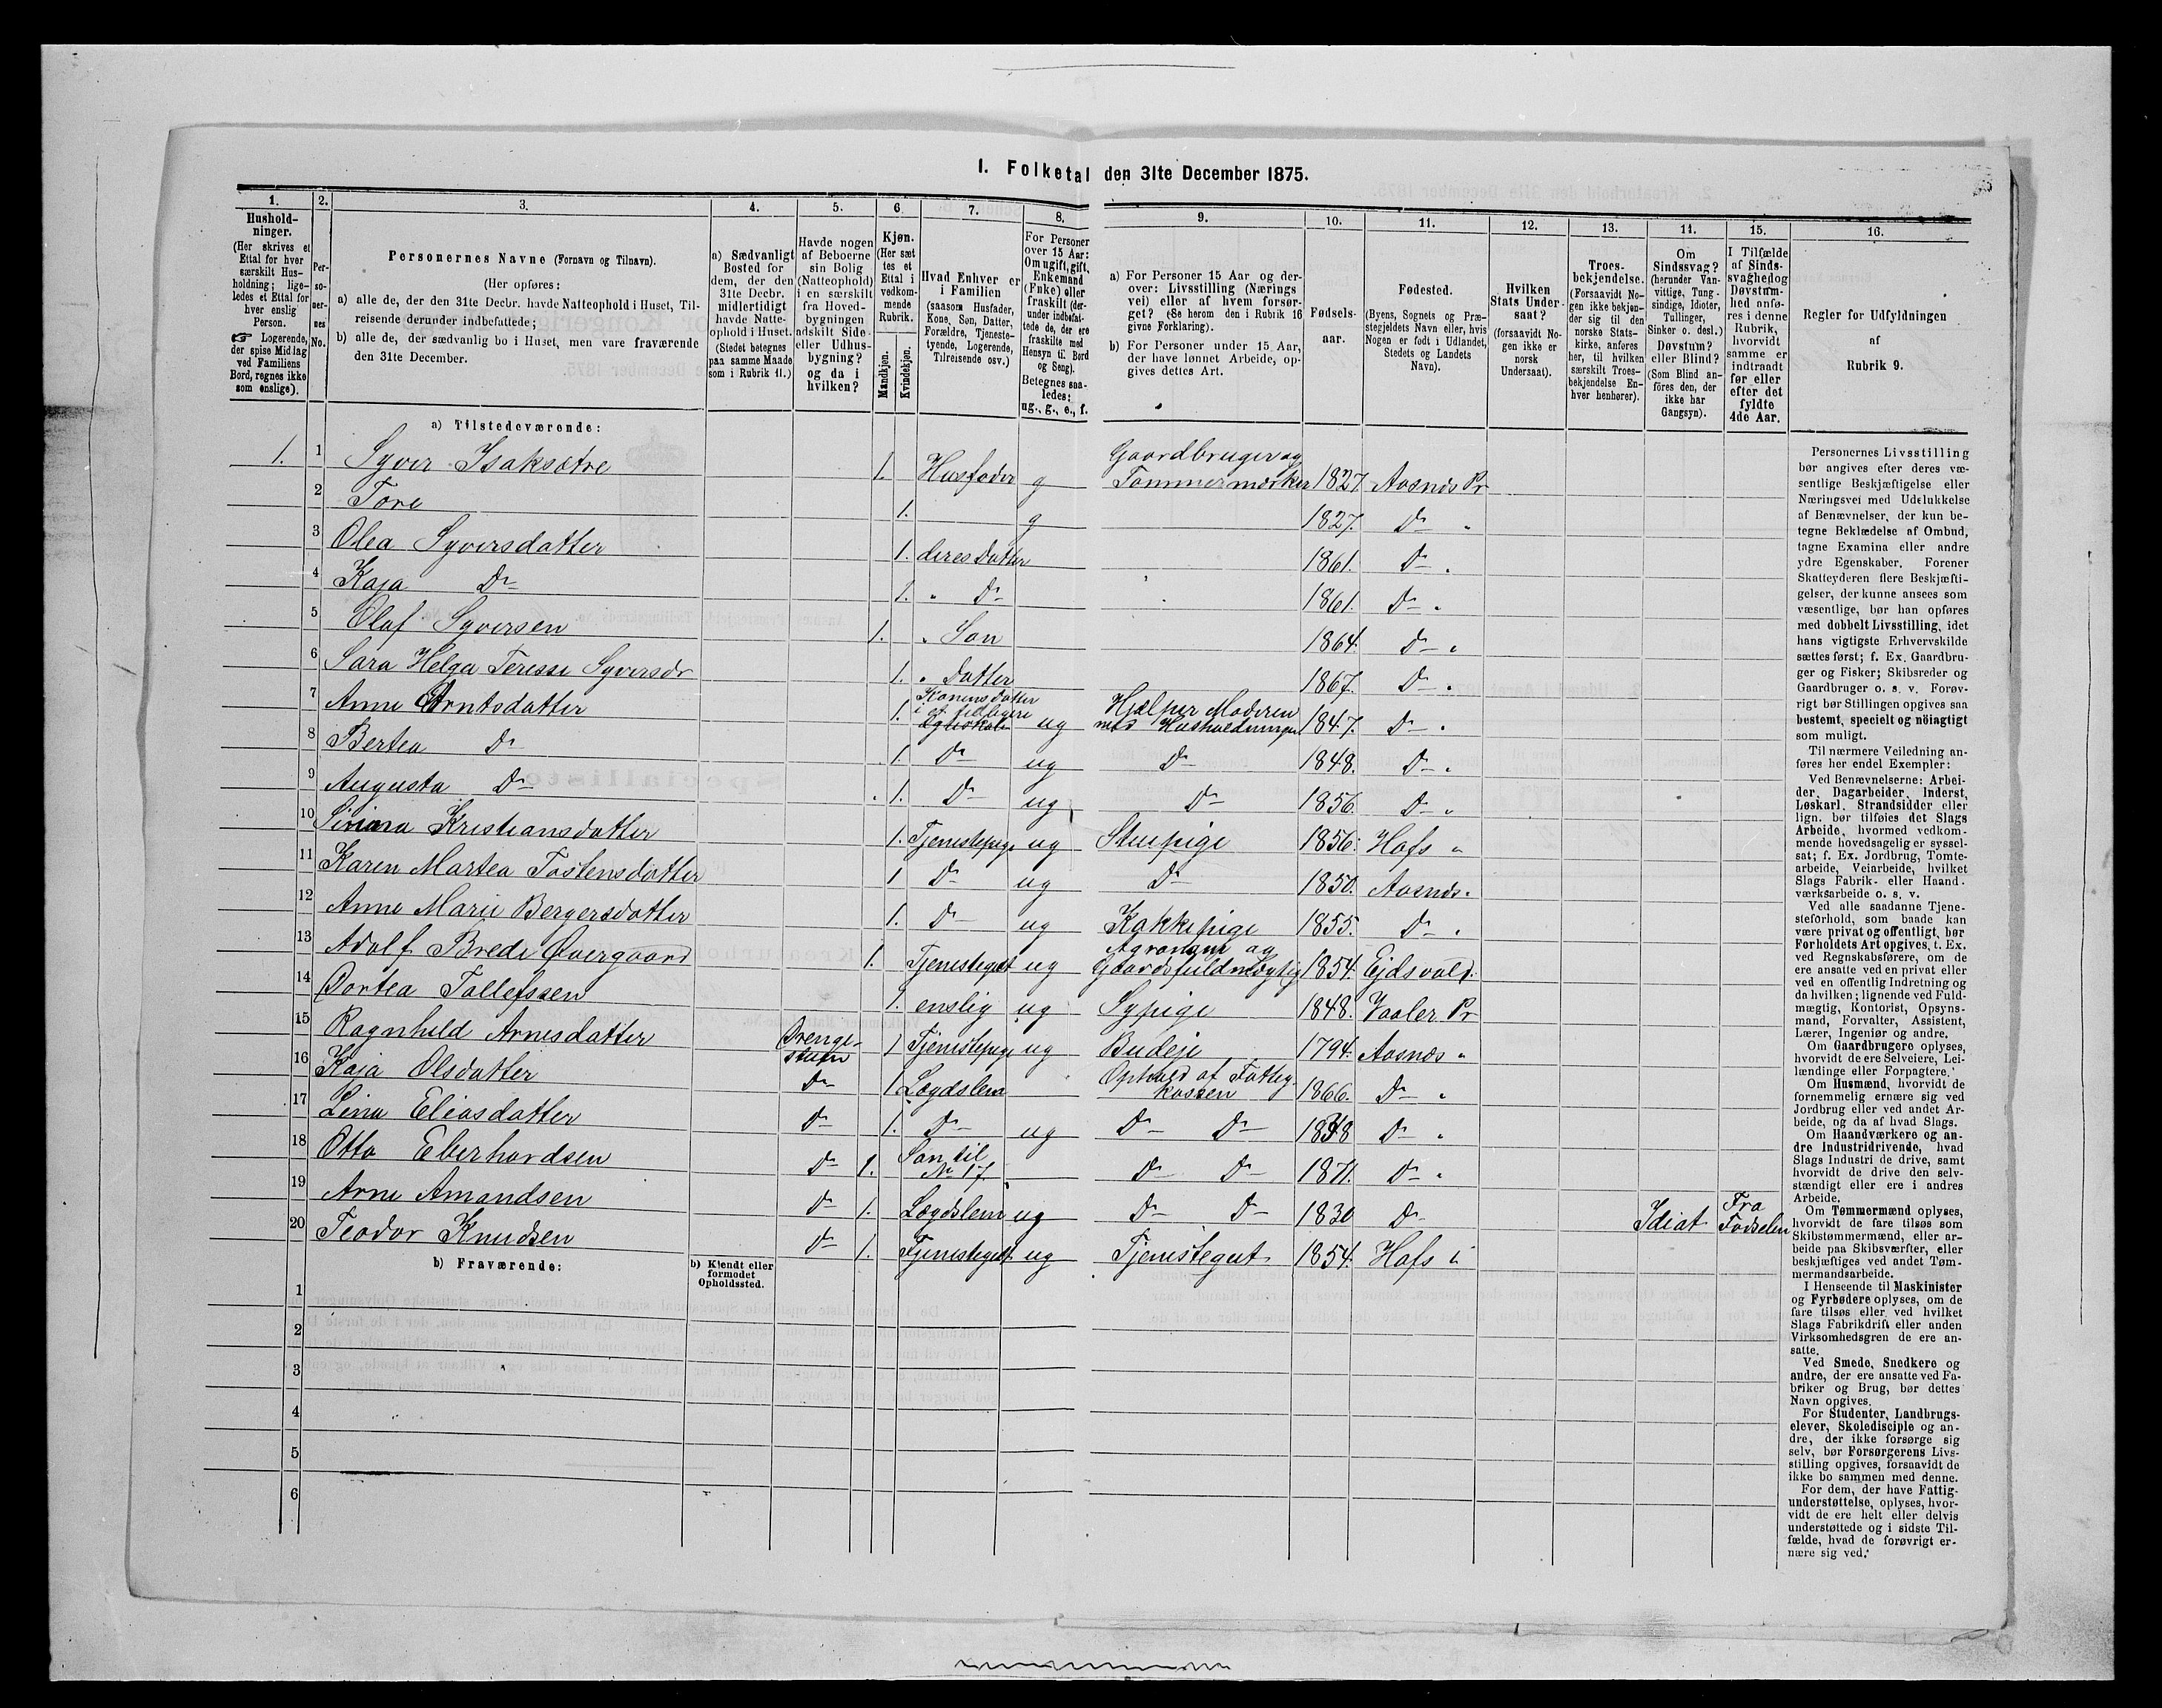 I. Folketal den 31te December 1875.
1. 2. 3. 4. 5. 6 7. 8. 9. 10. 11. 12. 13. 14. 15. 16.
Hushold-
ninger.
(Her skrives et
Ettal for hver
særskilt Hus-
holdning; lige-
ledes et Ettal for
hver enslig
Person.
☞ Logerende,
der spise Middag
ved Familiens
Bord, regnes ikke
som enslige).
Per-
so-
ner-
nes
No.
Personernes Navne (Fornavn og Tilnavn).
(Her opføres:
a) alle de, der den 31te Decbr. havde Natteophold i Huset, Til-
reisende derunder indbefattede;
b) alle de, der sædvanlig bo i Huset, men vare fraværende
den 31te December.
a) Sædvanligt
Bosted for
dem, der den
31te Decbr.
midlertidigt
havde Natte-
ophold i Huset.
(Stedet betegnes
paa samme Maade
som i Rubrik 11.)
Havde nogen
af Beboerne
sin Bolig
(Natteophold)
i en særskilt
fra Hoved-
bygningen
adskilt Side-
eller Udhus-
bygning?
og da i
hvilken?
Kjøn.
(Her sæt
tes et
Ettal i
vedkom-
mende
Rubrik.
Mandkjøn.
Kvindekjøn.
Hvad Enhver er
i Familien
(saasom Husfader,
Kone, Søn, Datter,
Forældre, Tjeneste-
tyende, Logerende,
Tilreisende osv.)
For Personer
over 15 Aar:
Om ugift, gift,
Enkemand
(Enke) eller
fraskilt (der-
under indbefat-
tede de, der ere
fraskilte med
Hensyn til Bord
og Seng).
Betegnes saa-
ledes:
ug., g., e., f.
a) For Personer 15 Aar og der-
over: Livsstilling (Nærings
vei) eller af hvem forsør-
get? (Se herom den i Rubrik 16
givne Forklaring).
b) For Personer under 15 Aar,
der have lønnet Arbeide, op-
gives dettes Art.
Fødsels-
aar.
Fødested.
(Byens, Sognets og Præ-
stegjeldets Navn eller, hvis
Nogen er født i Udlandet,
Stedets og Landets
Navn).
Hvilken
Stats Under-
saat?
(forsaavidt No-
gen ikke er
norsk
Undersaat).
Troes-
bekjendelse.
(Forsaavidt No-
gen ikke bekjen-
der sig til den
norske Stats-
kirke, anføres
her, til hvilken
særskilt Troes-
bekjendelse En-
hver henhører).
Om
Sindssvag?
(herunder Van-
vittige, Tung-
sindige, Idioter,
Tullinger,
Sinker o. desl.)
Døvstum?
eller Blind?
(Som Blind an-
føres den, der
ikke har
Gangsyn).
I Tilfælde
af Sinds-
svaghed og
Døvstum-
hed anfø-
res i denne
Rubrik,
hvorvidt
samme er
indtraadt
før eller
efter det
fyldte
4de Aar.
Regler for Udfyldningen
af
Rubrik 9.
a) Tilstedeværende:
1. 1 Syver Isaksætre 1. Husfader g Gaardbruger og Tømmermærker 1827. Aasnæs Pr
2 Tore 1. g 1827. Do "
3 Olea Syversdatter 1. deres Datter 1861. Do "
4 Kaja Do 1. " Do 1861. Do "
5 Olaf Syversen 1. " Søn 1864. Do "
6 Sara Helga Teresse Syversdr 1. " Datter 1867. Do "
7 Anne Arntsdatter 1. Konens Datter i et tidligere Egteskab ug Hjælper Moderen med Husholdningen 1847. Do "
8 Bertea Do 1. Do ug Do 1848. Do "
9 Augusta Do 1. Do ug Do 1856. Do "
10 Kristiansdatter 1. Tjenestepige ug Stuepige 1856. Hofs "
11 Karen Martea Tostensdatter 1 Do ug Do 1850. Aasnæs "
12 Anne Marie Bergersdatter 1. Do ug Kokkepige 1855. Do "
13 Adolf Brede Overgaard 1. Tjenestegut ug Agronom og Gaardsfuldmægtig 1854. Ejdsvold.
14 Dortea Tollefssen 1. enslig ug Sypige 1848. Vaaler Pr
15 Ragnhild Arnesdatter Drenge-stuen 1 Tjenestepige ug Budeje 1794. Aasnæs "
16 Kaja Olsdatter Do 1 Lægdslem Ophold af Fattigkassen 1866. Do "
17 Lina Eliasdatter Do 1. Do ug Do Do Do "
18 Otto Eberhardsen Do 1. Søn til No 17. Do Do 1871. Do "
19 Arne Amandsen Do 1. Lægdslem ug Do Do 1830 Do Idiot Fra Fødselen
20 Teodor Knudsen Do 1. Tjenestegut ug Tjenestegut 1854. Hofs "
b) Fraværende:
b) Kjendt eller
formodet
Opholdssted.
1
2
3
4
5
6
Personernes Livsstilling
bør angives efter deres væ-
sentlige Beskjæftigelse eller
Næringsvei med Udelukkelse
af Benævnelser, der kun be-
tegne Beklædelse af Ombud,
tagne Examina eller andre
ydre Egenskaber. Forener
Skatteyderen flere Beskjæfti-
gelser, der kunne ansees som
væsentlige, bør han opføres
med dobbelt Livsstilling, idet
hans vigtigste Erhvervskilde
sættes først; f. Ex. Gaardbru-
ger og Fisker; Skibsreder og
Gaardbruger o. s. v. Forøv-
rigt bør Stillingen opgives saa
bestemt, specielt og nöiagtigt
som muligt.
Til nærmere Veiledning an-
føres her endel Exempler:
Ved Benævnelserne: Arbei-
der, Dagarbeider, Inderst,
Løskarl, Strandsidder eller
lign. bør tilføies det Slags
Arbeide, hvormed vedkom-
mende hovedsagelig er syssel-
sat; f. Ex. Jordbrug, Tomte-
arbeide, Veiarbeide, hvilket
Slags Fabrik- eller Haand-
værksarbeide o. s. v.
Ved alle saadanne Tjene-
steforhold, som baade kan
være privat og offentligt, bør
Forholdets Art opgives, t. Ex.
ved Regnskabsførere, om de
ere ansatte ved en privat eller
ved en offentlig Indretning og
da hvilken; lignende ved Fuld-
mægtig, Kontorist, Opsyns-
mand, Forvalter, Assistent,
Lærer, Ingeniør og andre.
Om Gaardbrugere oplyses,
hvorvidt de ere Selveiere, Lei-
lændinge eller Forpagtere.
Om Husmænd, hvorvidt de
fornemmelig ernære sig ved
Jordbrug eller ved andet Ar-
beide, og da af hvad Slags.
Om Haandværkere og an-
dre Industridrivende, hvad
Slags Industri de drive, samt
hvorvidt de drive den selv-
stændigt eller ere i andres
Arbeide.
Om Tømmermænd oplyses,
hvorvidt de fare tilsøs som
Skibstømmermænd, eller ar-
beide paa Skibsværfter, eller
beskjæftiges ved andet Tøm-
mermandsarbeide.
I Henseende til Maskinister
og Fyrbødere oplyses, om de
fare tilsøs eller ved hvilket
Slags Fabrikdrift eller anden
Virksomhedsgren de ere an-
satte.
Ved Smede, Snedkere og
andre, der ere ansatte ved Fa-
briker og Brug, bør dettes
Navn opgives.
For Studenter, Landbrugs-
elever, Skoledisciple og an-
dre, der ikke forsørge sig
selv, bør Forsørgerens Livs-
stilling opgives, forsaavidt de
ikke bo sammen med denne.
For dem, der have Fattig-
understøttelse, oplyses, hvor-
vidt de ere helt eller delvis
understøttede og i sidste Til-
fælde, hvad de forøvrigt er-
nære sig ved.